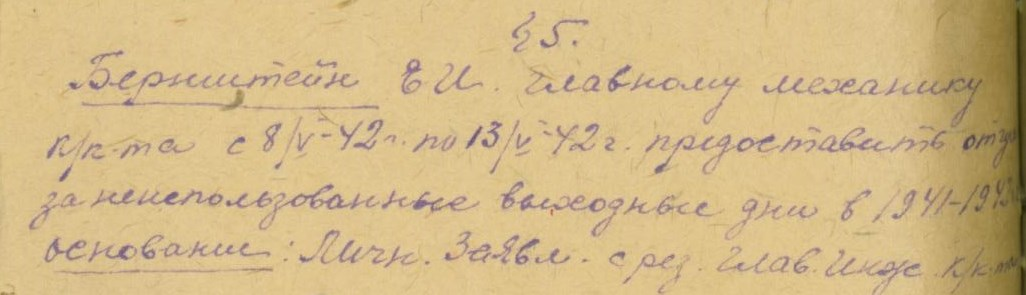 § 5.
Бернштейн Е И. Главному механику
к/к-та с 8/V-42г. по 13/V-42г. предоставить
за неиспользованные выходные дни в 1941-1942
основание: Личн. Заявл. с рез. Глав. Инж. к/к-та